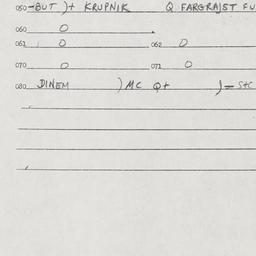 050 -BUT )+ KRUPNIK Q FARGRAJST FU
060 O
061 O 062 O
070 O 071 O
080 DINEM ) MC Q+ )= S+C